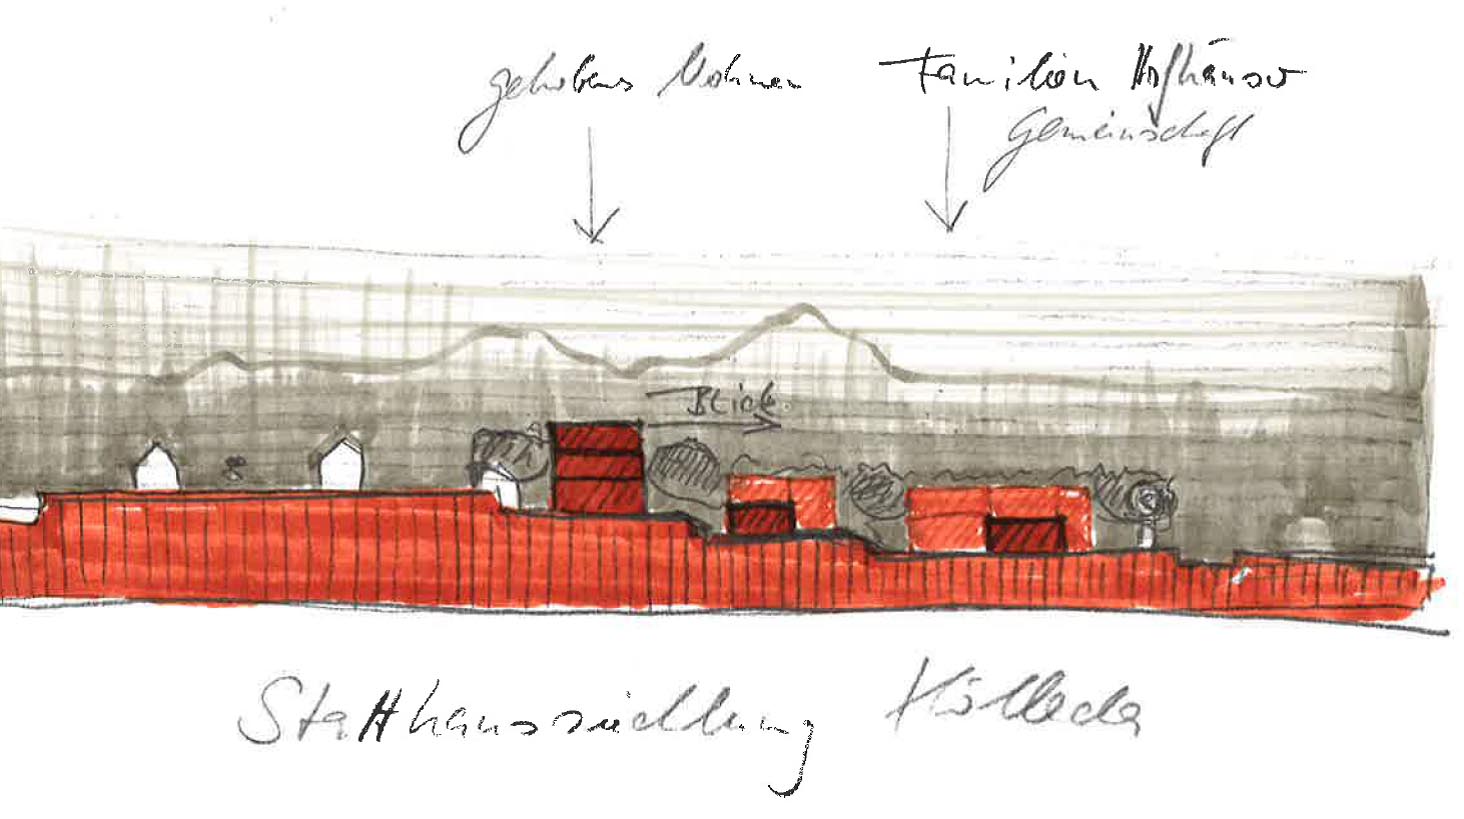 gehobenes Wohnen
Familien Hofhäuser
Gemeinschaft
Blick
Statthaussiedlung Kölleda